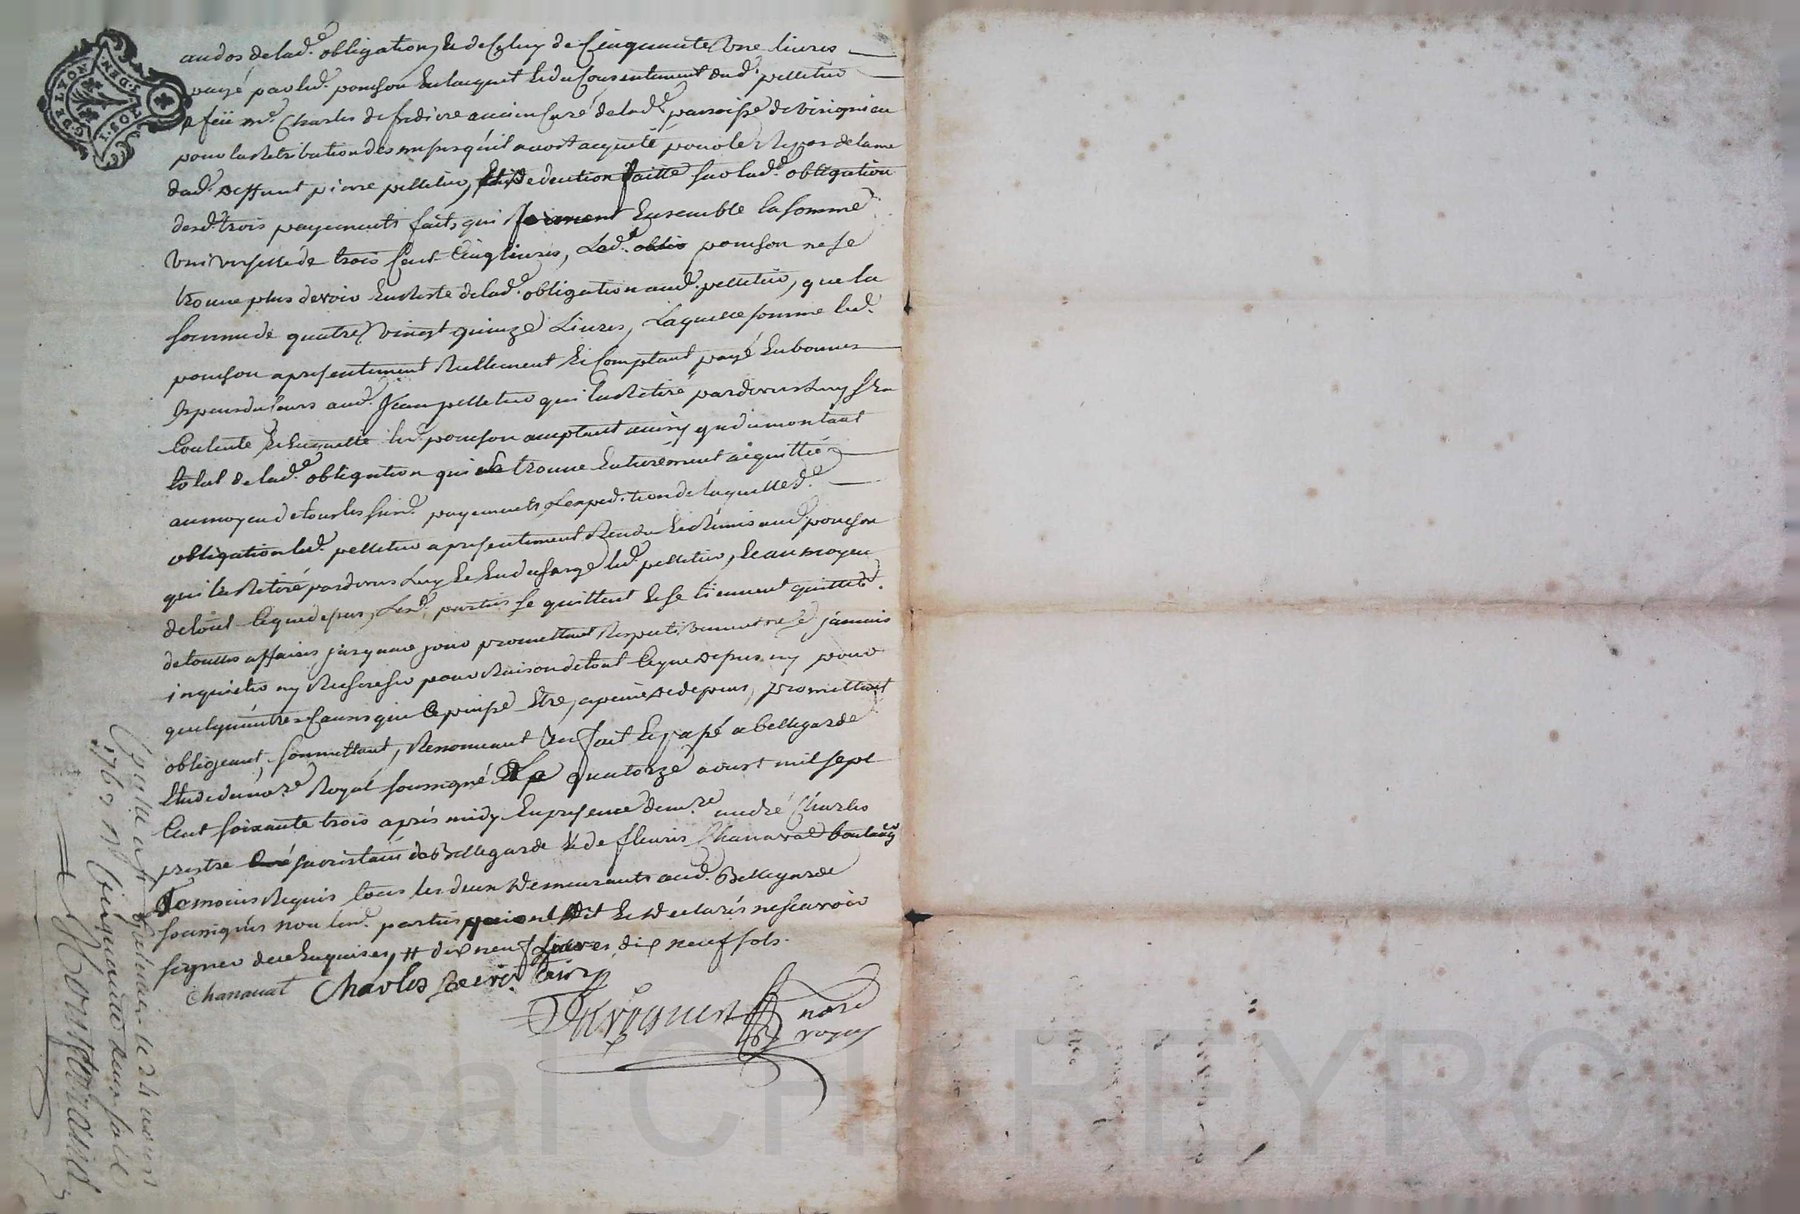 au dos de lad.e obligation, & de Celuy de Cinquante Une livres
payé par led. ponchon En lacquit & du Consentement dud. pelletier
a feü mre. Charles de fredière ancien Curé de lad.e parroisse de Virigneu
pour la Rétribution des messes qu'il avoit acquité pour le Repos de lame
dud. deffunt pierre pelletier, deduction faitte sur lad.e obligation
desd. trois payements faits qui forment Ensemble la somme
Universelle de trois Cent Cinq livres, Led. ponchon ne se
trouve plus devoir En Reste de lad.e obligation aud. pelletier, que la
somme de quatre Vingt quinze Livres, Laquelle somme led.
ponchon a presentement Réellement & Comptant payé En bonnes
Espèces du Cours aud. Jean pelletier qui la Retiré pardevers Luy s'En
Contente & En quitte led. ponchon acceptant ainsy que du montant
total de lad.e obligation qui se trouve Entièrement acquittée
au moyen de tous les susd. payements L'expedition de laquelle d.
obligation led. pelletier a presentement Rendu & Rémis aud. ponchon
qui la Retiré pardevers Luy & En décharge led. pelletier, & au moyen
de tout Ce que dessus, Lesd. parties se quittent & se tiennent quittes
de touttes affaires jusqu'a ce jour promettant Respectivement ne se jamais
inquieter ny Rechercher pour Raison de tout Ce que dessus ny pour
quelqu'autres Causes que Ce puisse Etre, a peine de depens, promettant
obligeant, soumettant, Renonceant &c. fait & passé a bellegarde
Etude du no.re Royal soussigné Le quatorze aoust mil sept
Cent soixante trois après midy En presence de m.re andré Charles
prestre sacristain de Bellegarde & de fleuris Chanavat
Temoins Requis tous les deux Demeurants aud. Bellegarde
soussignés non lesd. parties qui ont Dit & Declarés ne scavoir
signer de ce Enquises, # dix neuf livres dix neuf sols.
Chanavat Charles
no.re
royal
Controllé a st Galmier le 24 aoust
1763 R.